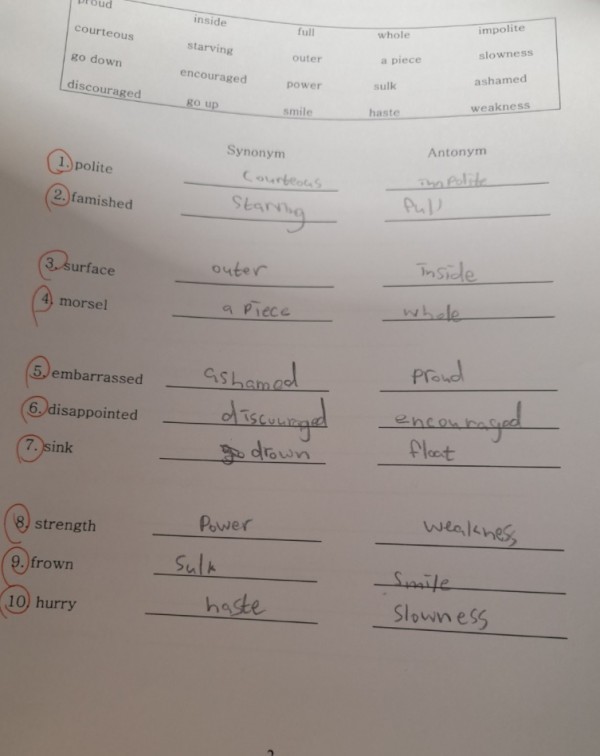 proud inside full whole impolite
courteous starving outer a piece slowness
go down encouraged power sulk ashamed
discouraged go up smile haste weakness
Synonym Antonym
1. polite Courteous impolite
2. famished Starving full
3. surface outer inside
4. morsel a piece whole
5. embarrassed ashamed proud
6. disappointed discouraged encouraged
7. sink drown float
8. strength Power weakness
9. frown Sulk Smile
10. hurry haste Slowness